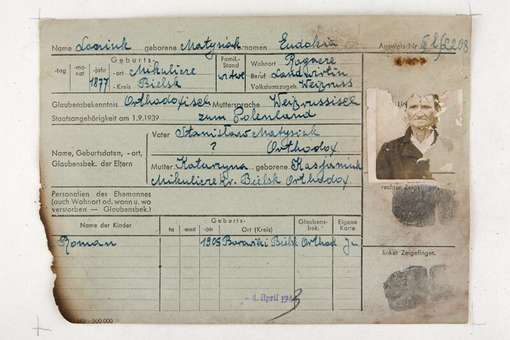 Name Ławiuk geborene Matysiak Vornamen Eudokia Ausweis-Nr.
Geburts- Famil.- Stand Wohnort Rogacze
-tag -monat -jahr -ort Mikulicze witwe Beruf Landwirtin
1877 -Kreis Bielsk Volkstumszugeh. Weißruss
Glaubensbekenntnis Orthodoxisch Muttersprache Weißrussisch
Staatsangehörigkeit am 1.9.1939 zum Polenland
Vater Stanisław Matysiak
Name, Geburtsdaten, -ort, ? Orthodox
Glaubensbek. der Eltern Mutter Katarzyna geborene
Mikulicze Kr. Bielsk Orthodox
rechter Zeigefinger
Personalien des Ehemannes
(auch Wahrort od. wann u. wo
verstorben — Glaubensbek.)
Name der Kinder Geburts- Glaubens- bek. Eigene Karte
-ta -mont -jahr Ort (Kreis)
Roman 1905 Bielsk Orthod Ja
linker Zeigefinger.
4. April 194
300 000